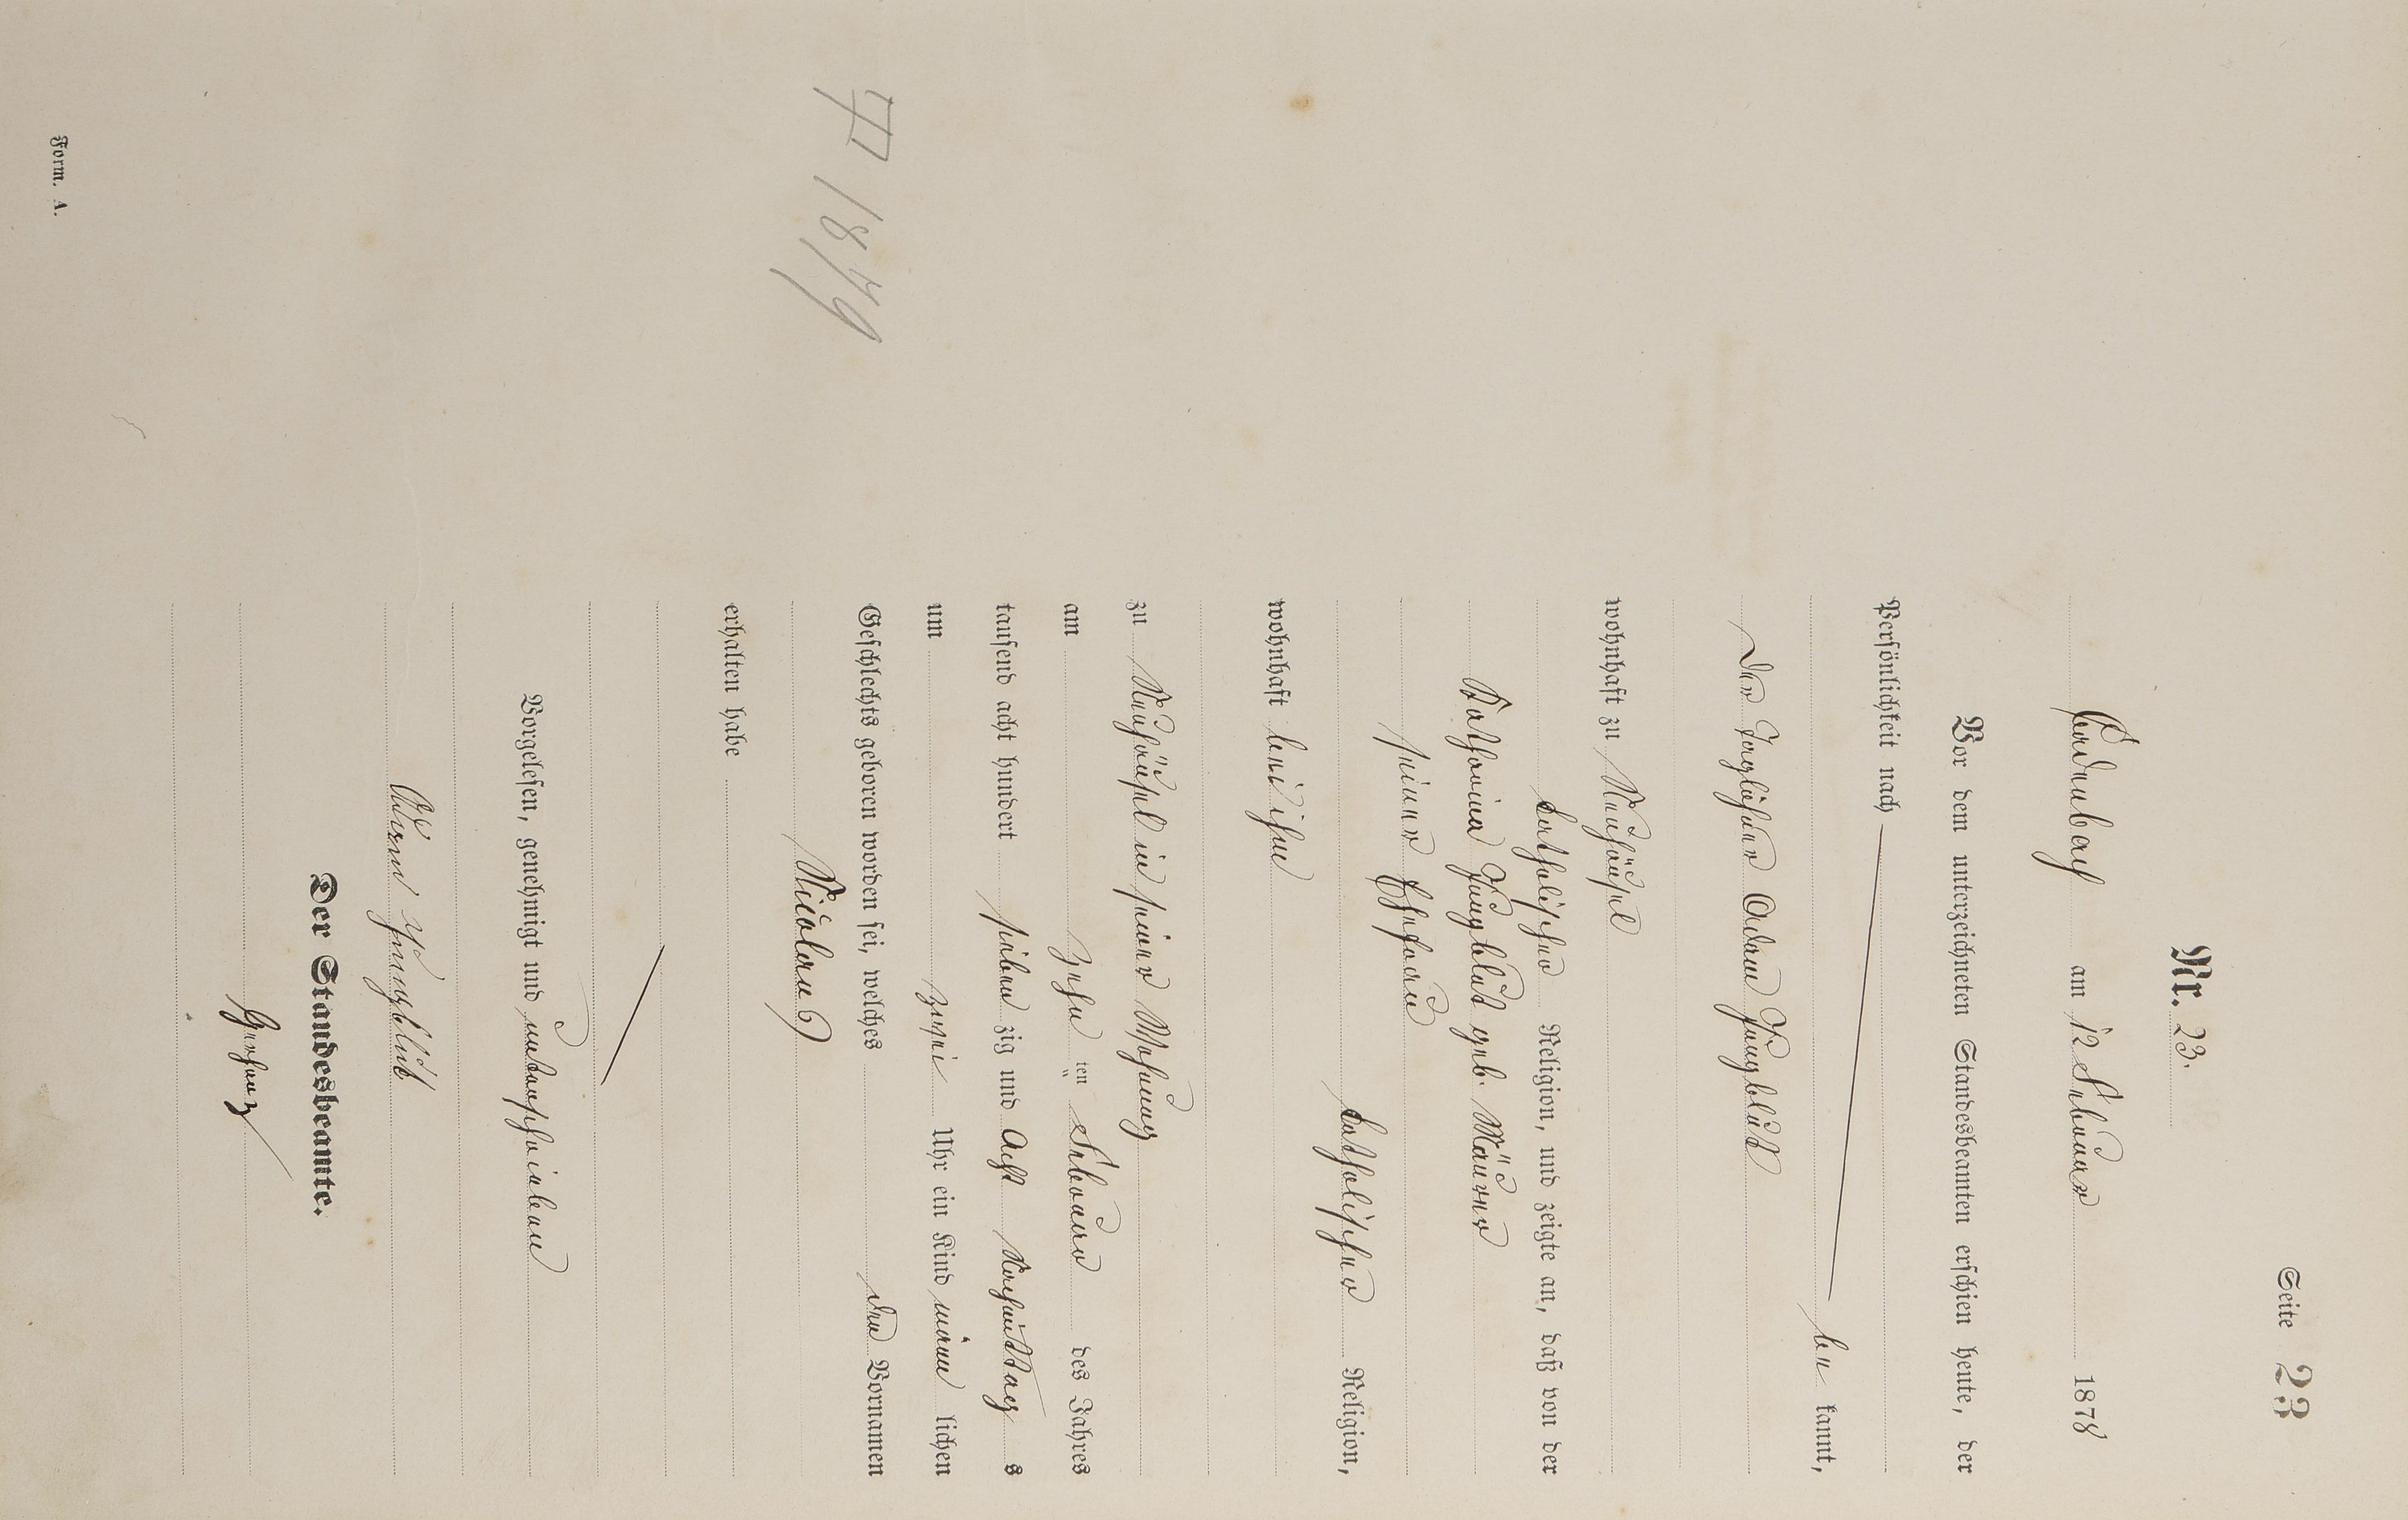 Seite 23
Nr. 23.
Bodenbach am 12 Februar 1878
Vor dem unterzeichneten Standesbeamten erschien heute, der
Persönlichkeit nach
be kannt,
der Taglöhner Adam Jungblut
wohnhaft zu Neuhäusel
katholischer Religion, und zeigte an, daß von der
Katharina Jungblut geb. Mäurer
seiner Ehefrau
katholischer Religion,
wohnhaft bei ihm
zu Neuhäusel in seiner Wohnung
am zehn ten Februar des Jahres
tausend acht hundert sieben zig und Acht Nachmittag s
um zwei Uhr ein Kind männ lichen
Geschlechts geboren worden sei, welches den Vornamen
Nicolaus
erhalten habe
Vorgelesen, genehmigt und unterschrieben
Adam Jungblut
Der Standesbeamte.
† 1879
Form. A.